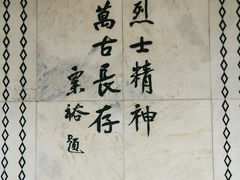 烈士精神
萬古長存
宗裕題